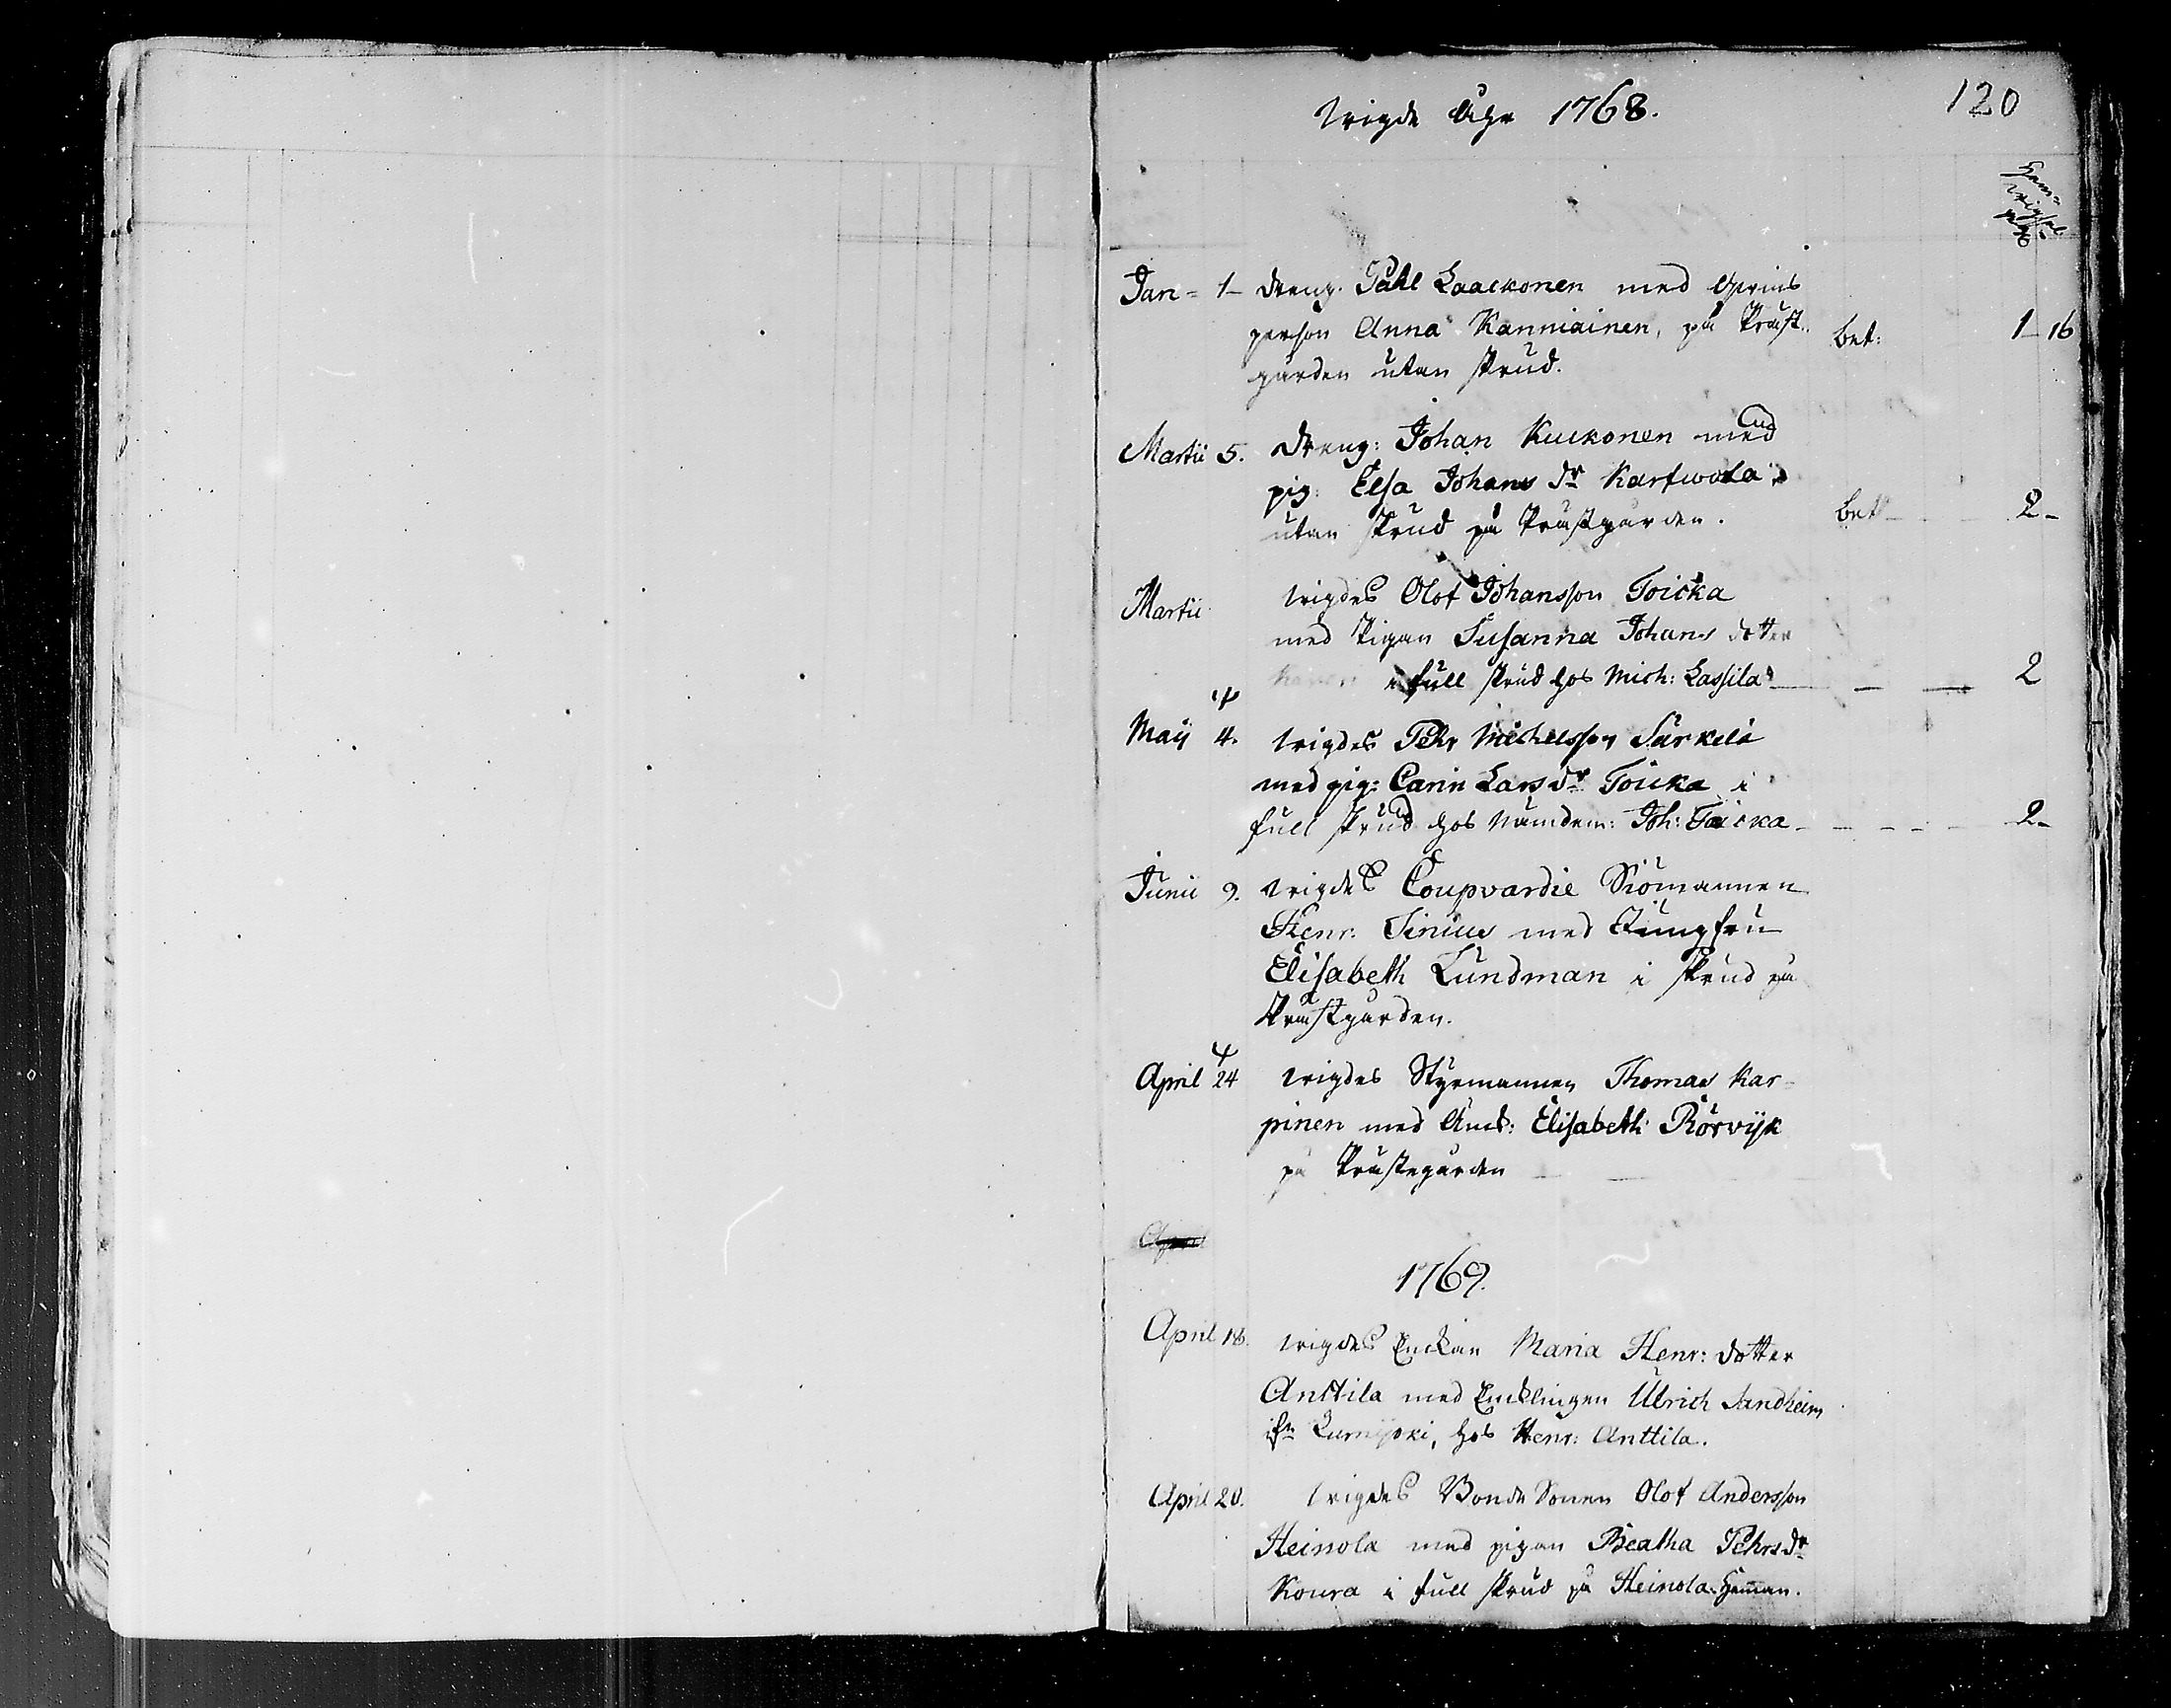 Wigde Åhr 1768.
120
Hem=
wigsel
Jan = 1 - Dreng. Påhl Laackonen med
person Anna Kanniainen, på Präst.
gården utan skrud.
bet: 1 - 16
Martii 5. Dreng: Johan Kuckonen med
pig: Elsa Johans dr Karfwola
utan skrud på Prästgården.
bet 2 -
Martii wigdes Olof Johansson Toicka
med Pigan Susanna Johans dotter
i full skrud hos Mich: Lassila 2
Maij 4. wigdes Pehr Michelsson Särkelä
med pig: Carin Lars dr Toicka i
full skrud hos Nämdem: Joh: Toicka 2 -
Junii 9. wigdes Coupvardie Siömannen
Henr: Sinius med Jungfru
Elisabeth Lundman i skrud på
Prästgården.
April 24 wigdes Styrmannen Thomas Kar=
pinen med Enck: Elisabeth Rörvijk
på Prästegården
April
1769.
April 18. wigdes Enckan Maria Henr: dotter
Anttila med Encklingen Ulrich Sandheim
ifn Lumijoki, hos Henr: Anttila.
April 20. wigdes Bonde Sonen Olof Andersson
Heinola med pigan Beatha Pehrs dr
Koura i full skrud på Heinola Heman.